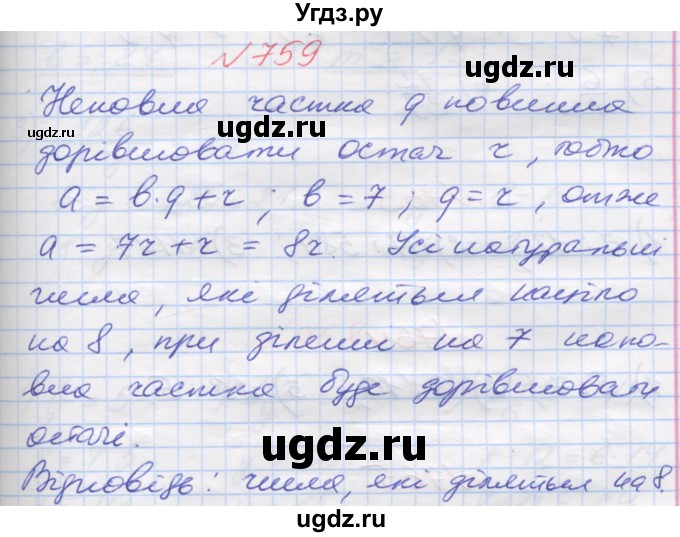 Угдз.ру
№759
ugdz.ru
Неповна частка q повинна
ugdz.ru ugdz.ru
дорівнювати остачі r, тобто
a = b·q+r; b=7; q=r, отже
a = 7r+r = 8r. Усі натуральні
числа, які діляться націло
на 8, при діленні на 7 непо-
вна частка буде дорівнювати
остачі.
ugdz.ru
Відповідь: числа, які діляться на 8.
ugdz.ru